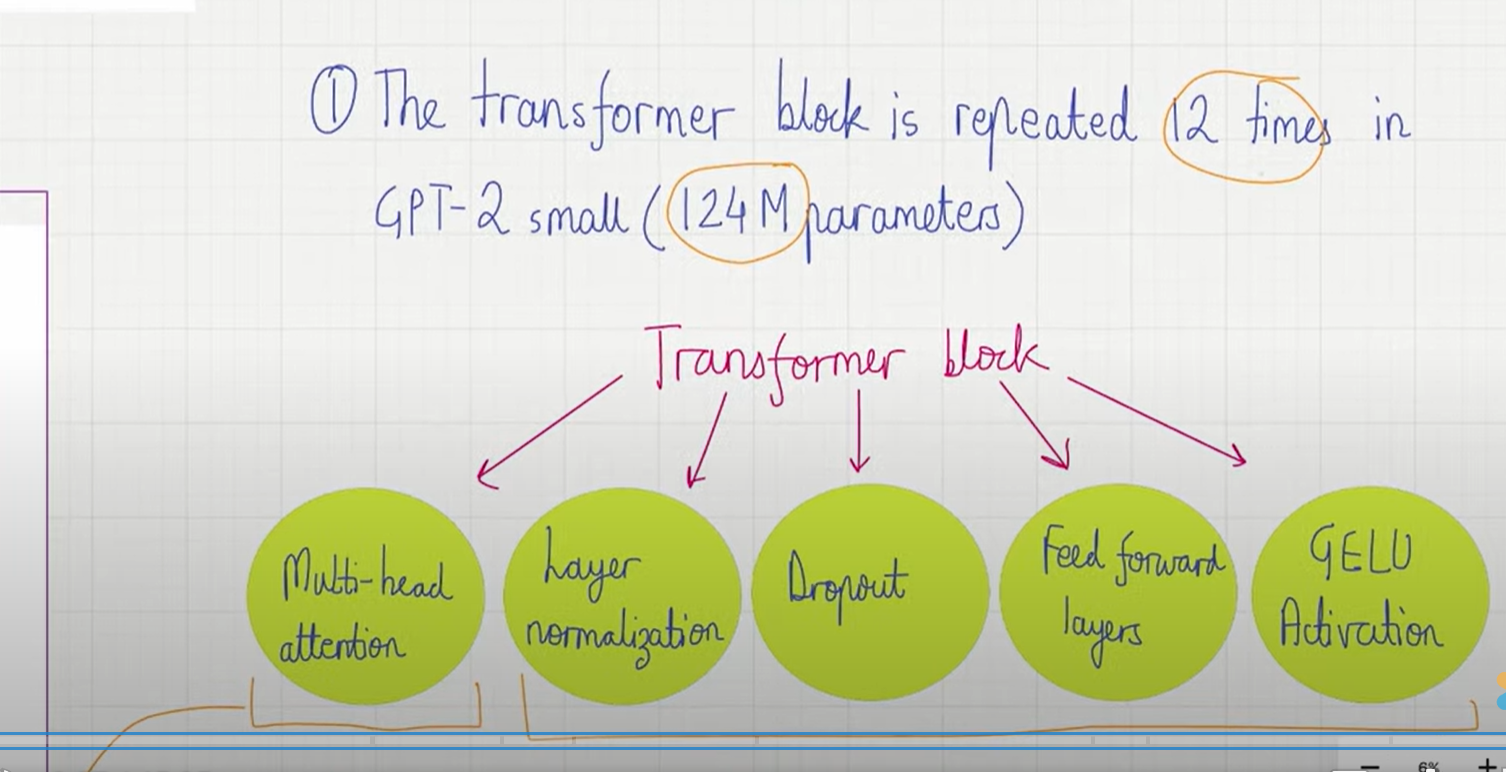 ① The transformer block is repeated 12 times in
GPT-2 small (124M parameters)
Transformer block
Multi-head
attention
Layer
normalization
Dropout
Feed forward
layers
GELU
Activation
6%